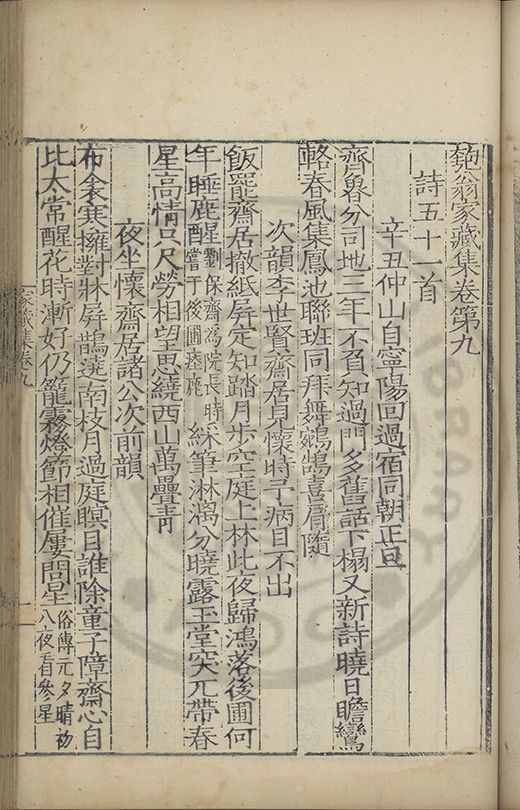 匏翁家藏集卷第九
詩五十一首
辛丑仲山自寧陽回過宿同朝正旦
齊魯分司地三年不負知過門多舊話下榻又新詩曉日瞻鸞
輅春風集鳳池聯班同拜舞鵷鵠喜肩隨
次韻李世賢齋居見懷時予病目不出
飯罷齋居撤紙屏定知踏月步空庭上林此夜歸鴻落後圃何
年睡鹿醒劉保齋為院長時嘗于後圃蓄鹿綵筆淋漓分曉露玉堂突兀帶春
星高情只尺勞相望思繞西山萬疊青
夜坐懷齋居諸公次前韻
布衾寒擁對牀屏鵲選南枝月過庭暝目誰除童子障齋心自
比太常醒花時漸好仍籠霧燈節相催屢問星俗傳元夕晴初八夜看參星
家藏集卷九
一